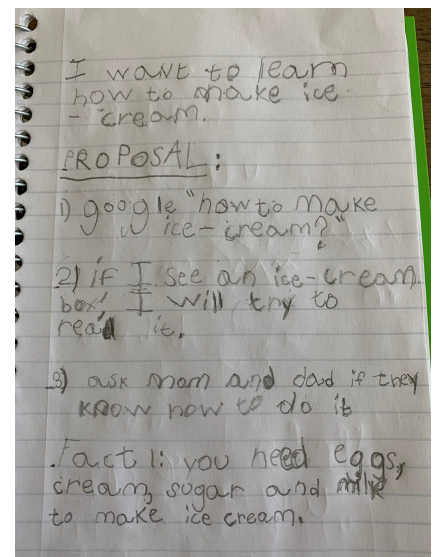 I want to learn
how to make ice
- cream.
PROPOSAL:
1) google "how to make
ice-cream?"
2) if I see an ice-cream
box, I will try to
read it.
3) ask mom and dad if they
know how to do it
Fact 1: you need eggs,
cream, sugar and milk
to make ice cream.